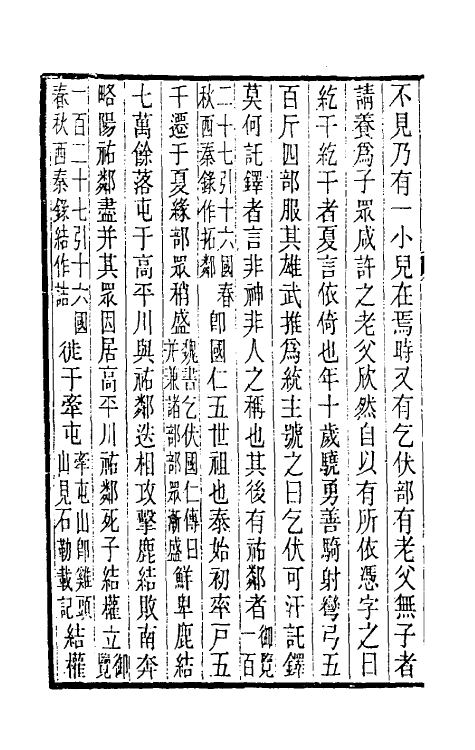 不見乃有一小兒在焉時又有乞伏部有老父無子者
請養爲子眾咸許之老父欣然自以有所依憑字之曰
紇干紇干者夏言依倚也年十歲驍勇善騎射彎弓五
百斤四部服其雄武推爲統主號之曰乞伏可汗託鐸
莫何託鐸者言非神非人之稱也其後有祐鄰者御覽一百
二十七引十六國春秋西秦錄作拓鄰卽國仁五世祖也泰始初率戸五
千遷于夏緣部眾稍盛魏書乞伏國仁傳曰并兼諸部部眾漸盛鮮卑鹿結
七萬餘落屯于高平川與祐鄰迭相攻擊鹿結敗南奔
略陽祐鄰盡并其眾因居高平川祐鄰死子結權立御覽
一百二十七引十六國春秋西秦錄結作詰徙于牽屯牽屯山卽雞頭山見石勒載記結權